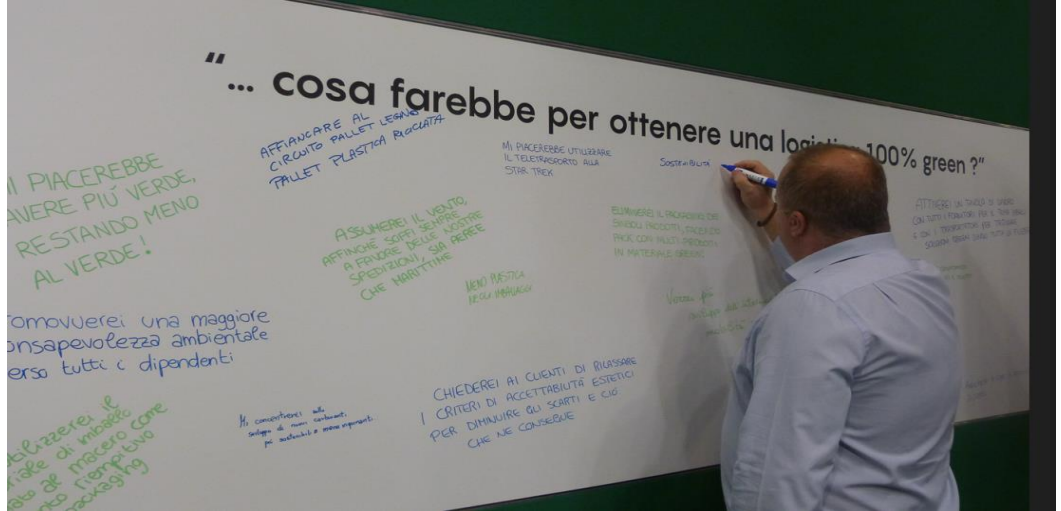 “... cosa farebbe per ottenere una logistica 100% green ?”
AFFIANCARE AL
CIRCUITO PALLET LEGNO
PALLET PLASTICA RICICLATA
MI PIACEREBBE UTILIZZARE
IL TELETRASPORTO ALLA
STAR TREK
SOSTENIBILITÀ
I PIACEREBBE
AVERE PIÚ VERDE,
RESTANDO MENO
AL VERDE!
ASSUMEREI IL VENTO,
AFFINCHÈ SOFFI SEMPRE
A FAVORE DELLE NOSTRE
SPEDIZIONI, SIA AEREE
CHE MARITTIME
MENO PLASTICA
NEGLI IMBALLAGGI
ELIMINEREI IL PACKAGING DEI
SINGOLI PRODOTTI, FACENDO
PACK CON MULTI PRODOTTI
IN MATERIALE
ATTIVEREI UN TAVOLO DI LAVORO
CON TUTTI I FORNITORI PER IL
E CON I TRASPORTATORI PER
SOLUZIONI
Vorrei più
sviluppo
omovuerei una maggiore
onsapevolezza ambientale
erso tutti i dipendenti
CHIEDEREI AI CLIENTI DI RILASSARE
I CRITERI DI ACCETTABILITÁ ESTETICI
PER DIMINUIRE GLI SCARTI E CIÓ
CHE NE CONSEGUE
Mi concentrerei sullo
sviluppo di nuovi carburanti
più sostenibili e meno inquinanti.
tilizzerei il
riale di imballo
ato al macero come
nto riempitivo
packaging